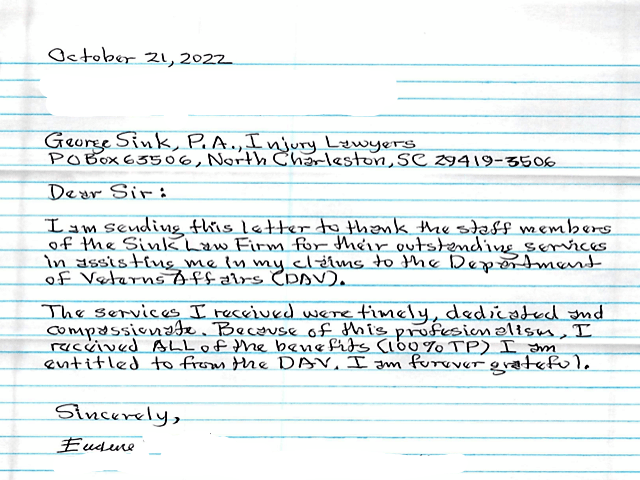 October 21, 2022
George Sink, P.A., Injury Lawyers
PO Box 63506, North Charleston, SC 29419-3506
Dear Sir:
I am sending this letter to thank the staff members
of the Sink Law Firm for their outstanding services
in assisting me in my claims to the Department
of Veterns Affairs (DAV).
The services I received were timely, dedicated and
compassionate. Because of this profesionalism, I
received ALL of the benefits (100% TP) I am
entitled to from the DAV. I am forever grateful.
Sincerely,
Eugene